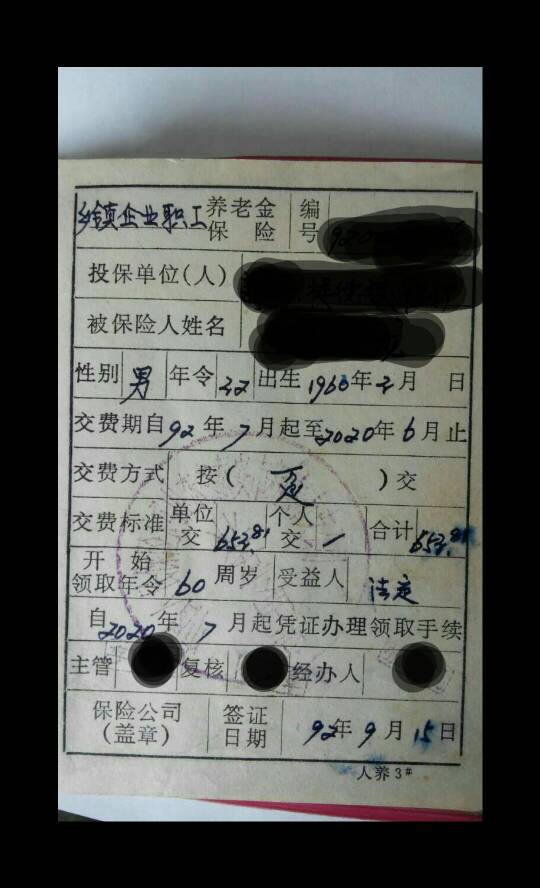 乡镇企业职工 养老金保险 编号
投保单位(人)
被保险人姓名
性别 男 年令 32 出生 1960年2月 日
交费期自92年7月起至2020年6月止
交费方式 按( )交
交费标准 单位交 653.81 个人交 / 合计 653.81
开始领取年令 60 周岁 受益人 法定
自2020年7月起凭证办理领取手续
主管 复核 经办人
保险公司(盖章) 签证日期 92年9月15日
人养3#